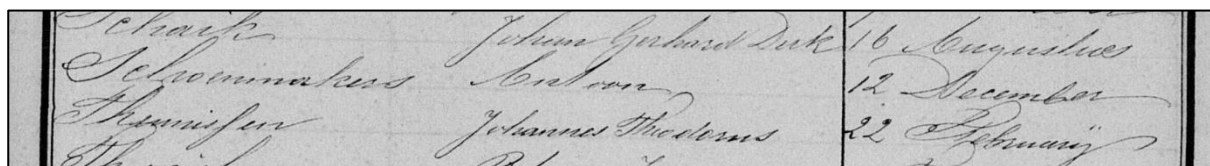 Schaik Johan Gerhard Dirk 16 Augustus
Schoenmakers Antoon 12 December
Theunissen Johannes Theodorus 22 February